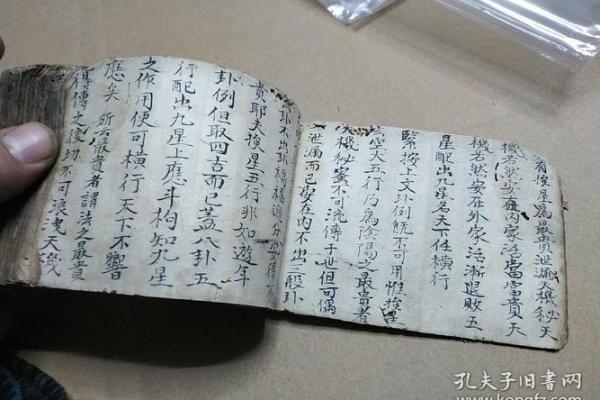 惟有挨星為最貴泄漏天機秘天
機若然安在內家活當富貴天
機若然安在外家活漸退敗五
星配出九星名天下任横行
緊按上文卦例既不可用惟挨星
空大五行乃為陰陽之最貴者
天機秘密不可流傳于世但可偶
泄漏而已安在內不出三般卦
卦不出卦
貴耶夫挨星五行非如遊年
卦例但取四吉而已蓋八卦五
行配出九星上應斗枸知九星
之作用便可横行天下不響
應矣 所云最貴者謂法之最貴
得傳之後切不可浪洩天機
孔夫子旧書网
www.kongfz.com